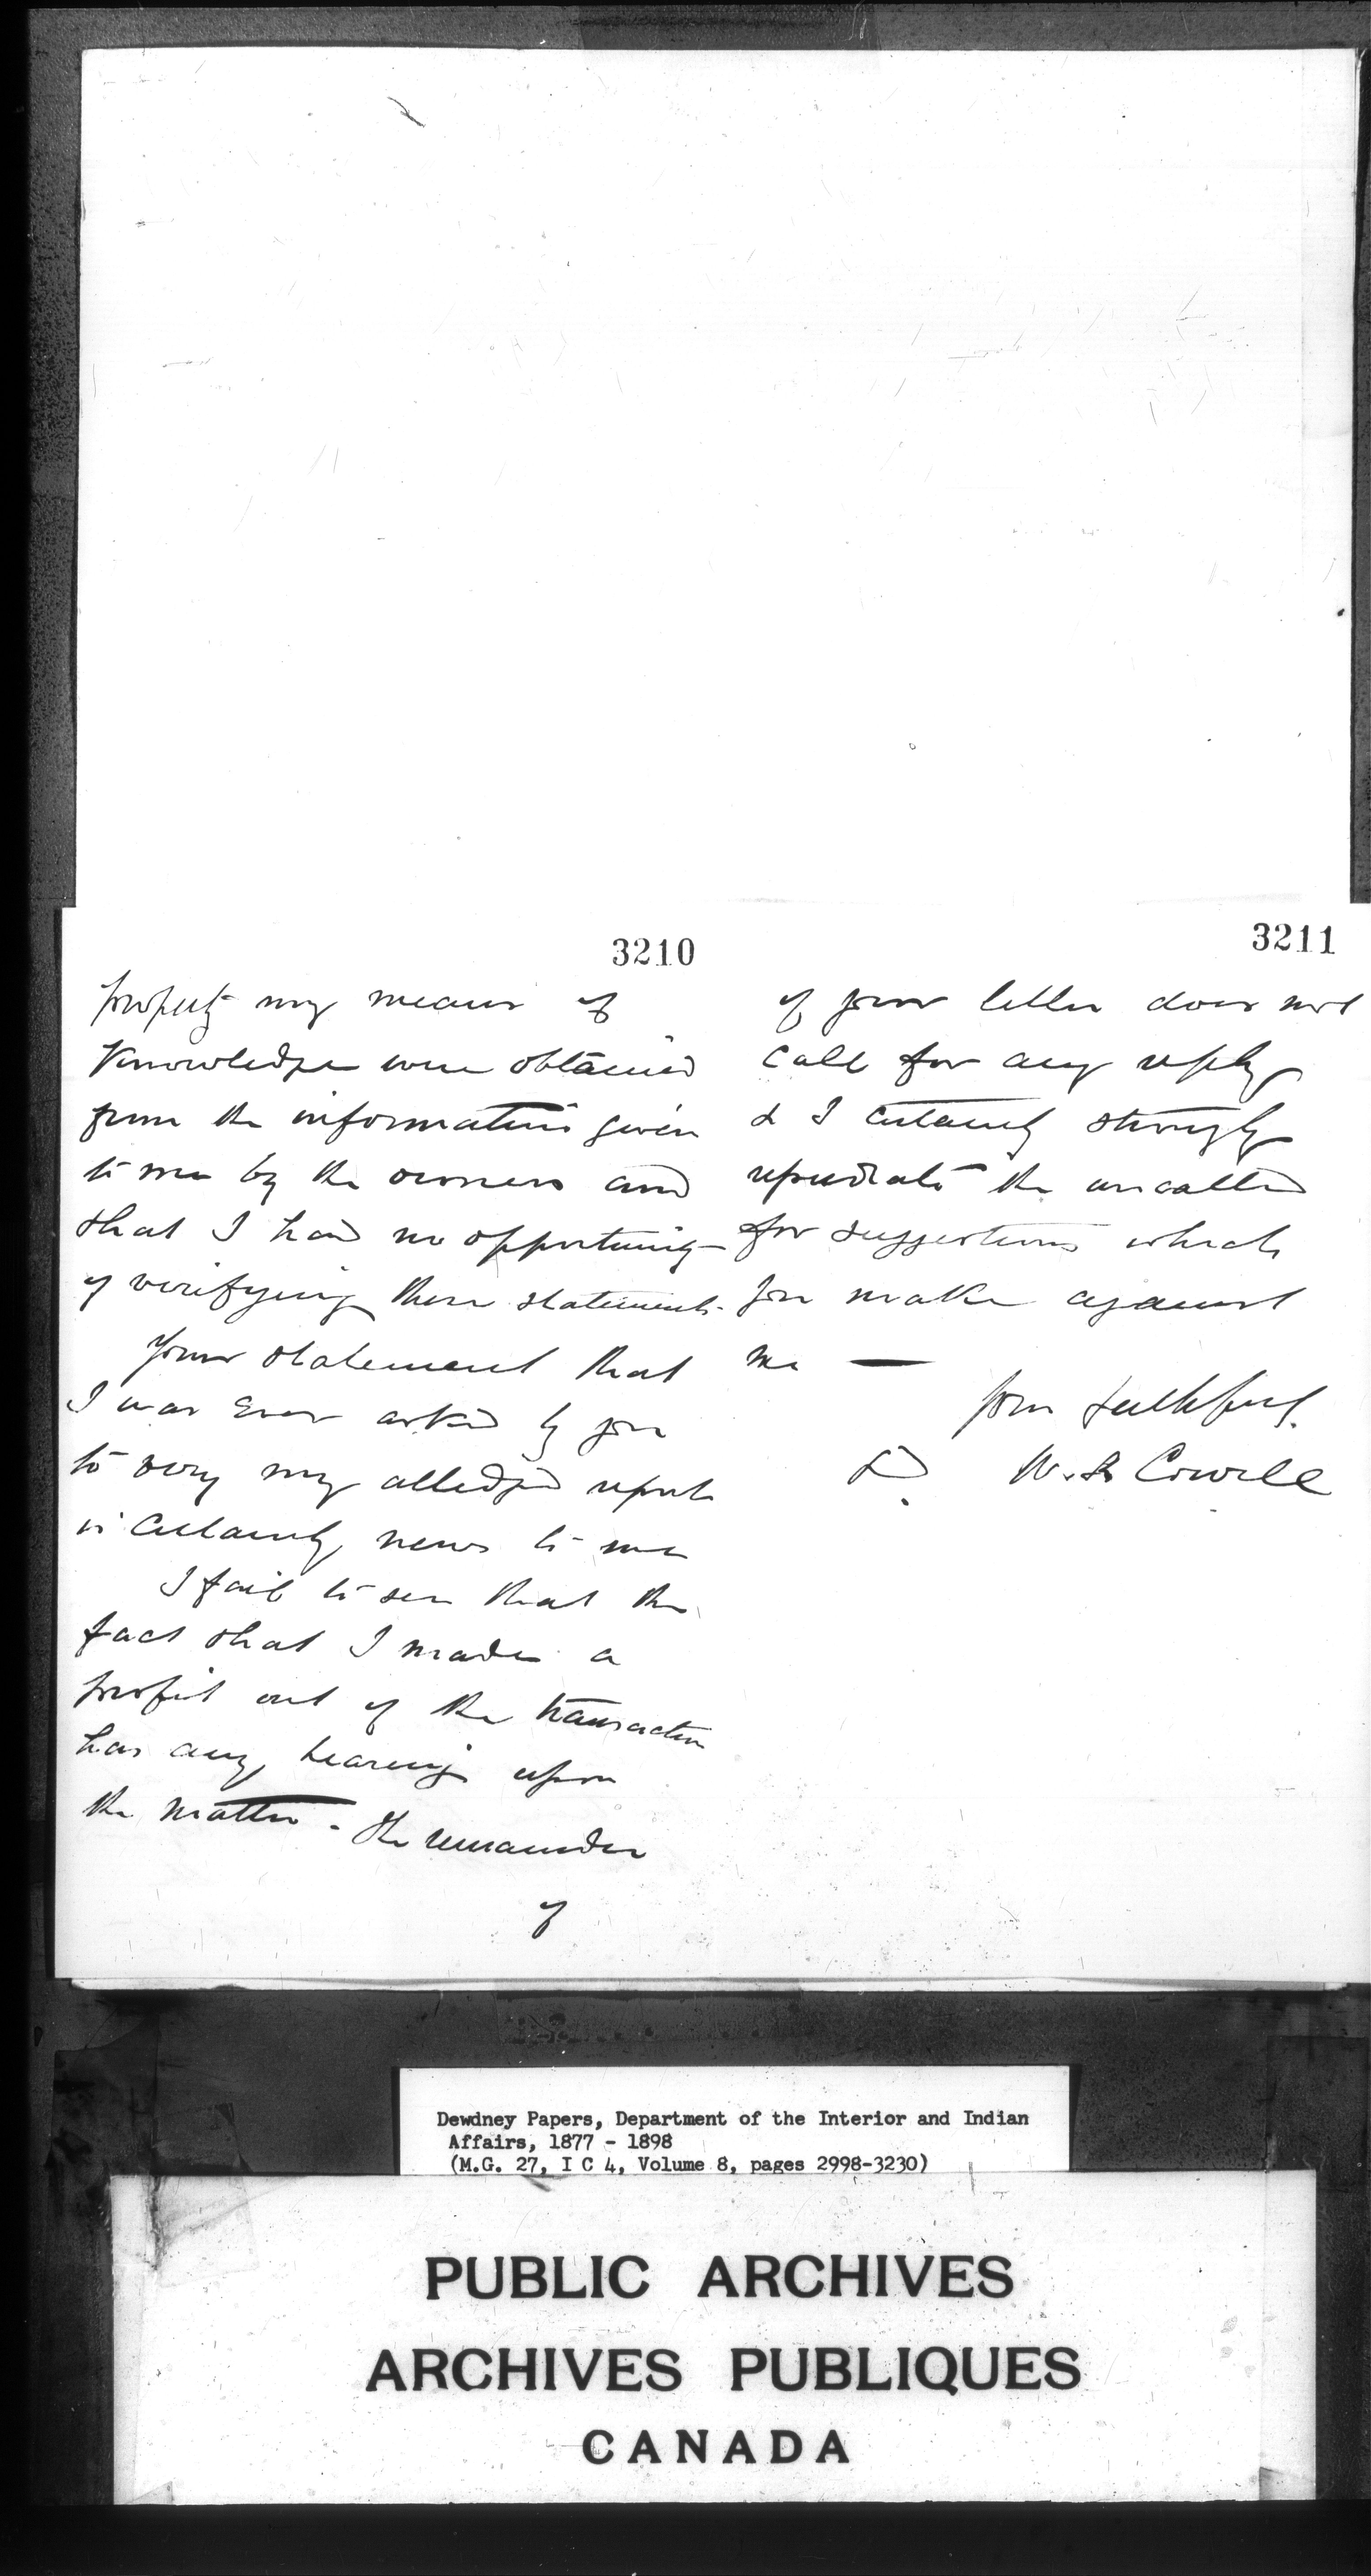 3210
property my means of
Knowledge were obtained
from the information given
to me by the owners and
that I had no opportunity
of verifying these statements.
Your statement that
I was ever asked by you
to very my alledged report
is certainly news to me
I fail to see that the
fact that I made a
profit out of the transaction
has any bearing upon
the matter. The remainder
of
3211
of your letter does not
call for any reply
& I certainly strongly
repudiate the uncalled
for suggestions which
you make against
me —
Yours faithfully.
W. Cowell
Dewdney Papers, Department of the Interior and Indian
Affairs, 1877 - 1898
(M.G. 27, I C 4, Volume 8, pages 2998-3230)
PUBLIC ARCHIVES
ARCHIVES PUBLIQUES
CANADA